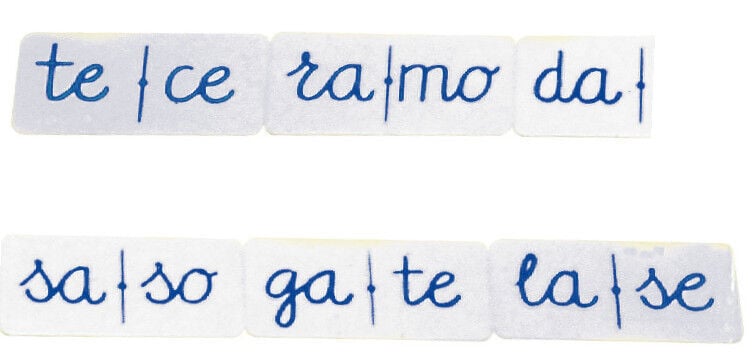 te|ce ra|mo da|
sa|so ga|te la|se